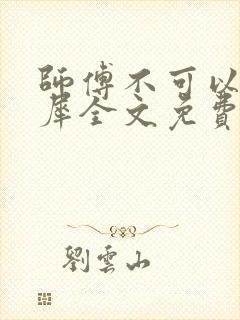 師傅不可以
犀全文免費
劉雲山